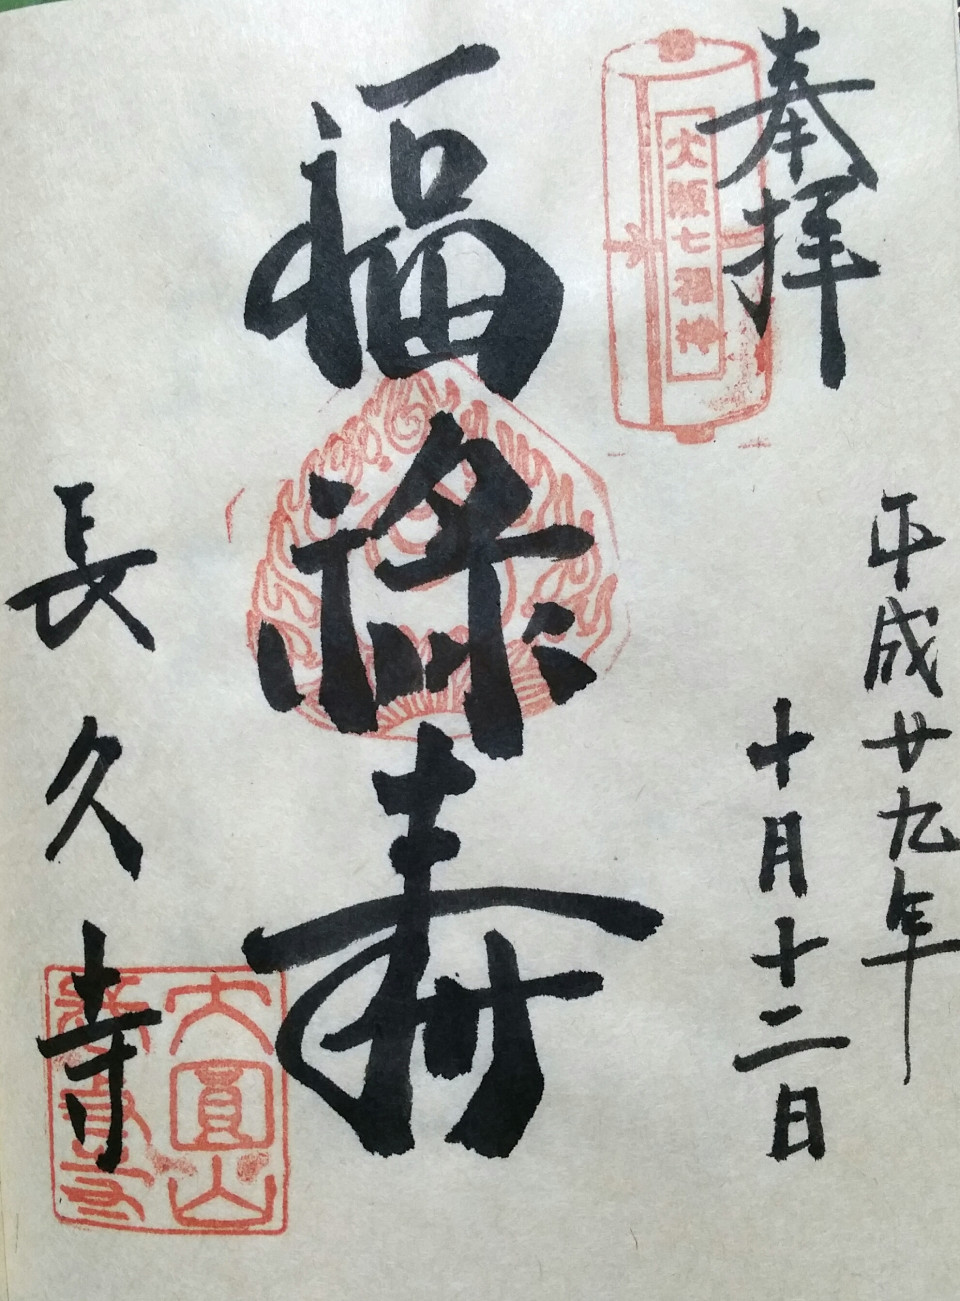 奉拝
大阪七福神
平成廿九年
十月十二日
福禄寿
長久寺
大圓山